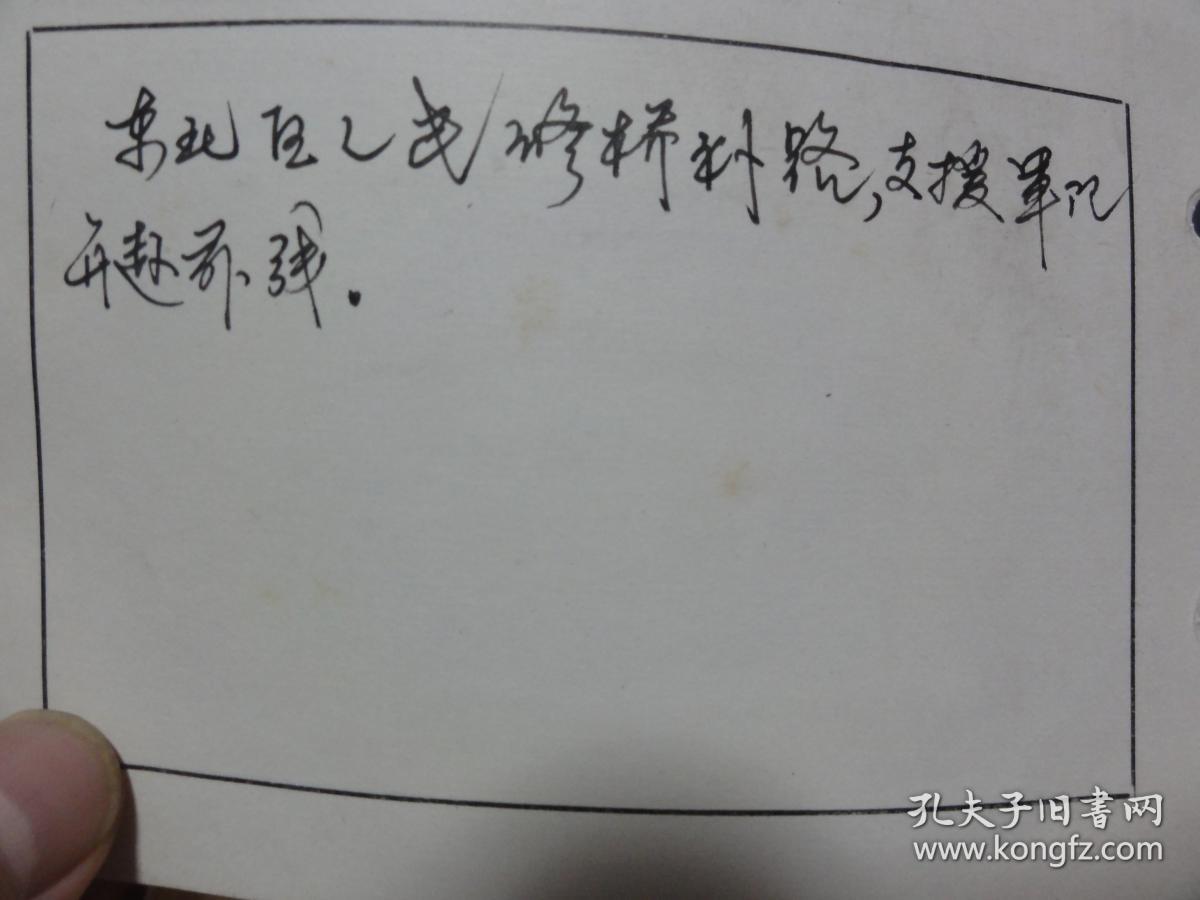 东北区人民修桥补路,支援军队
开赴前线.
孔夫子旧書网
www.kongfz.com